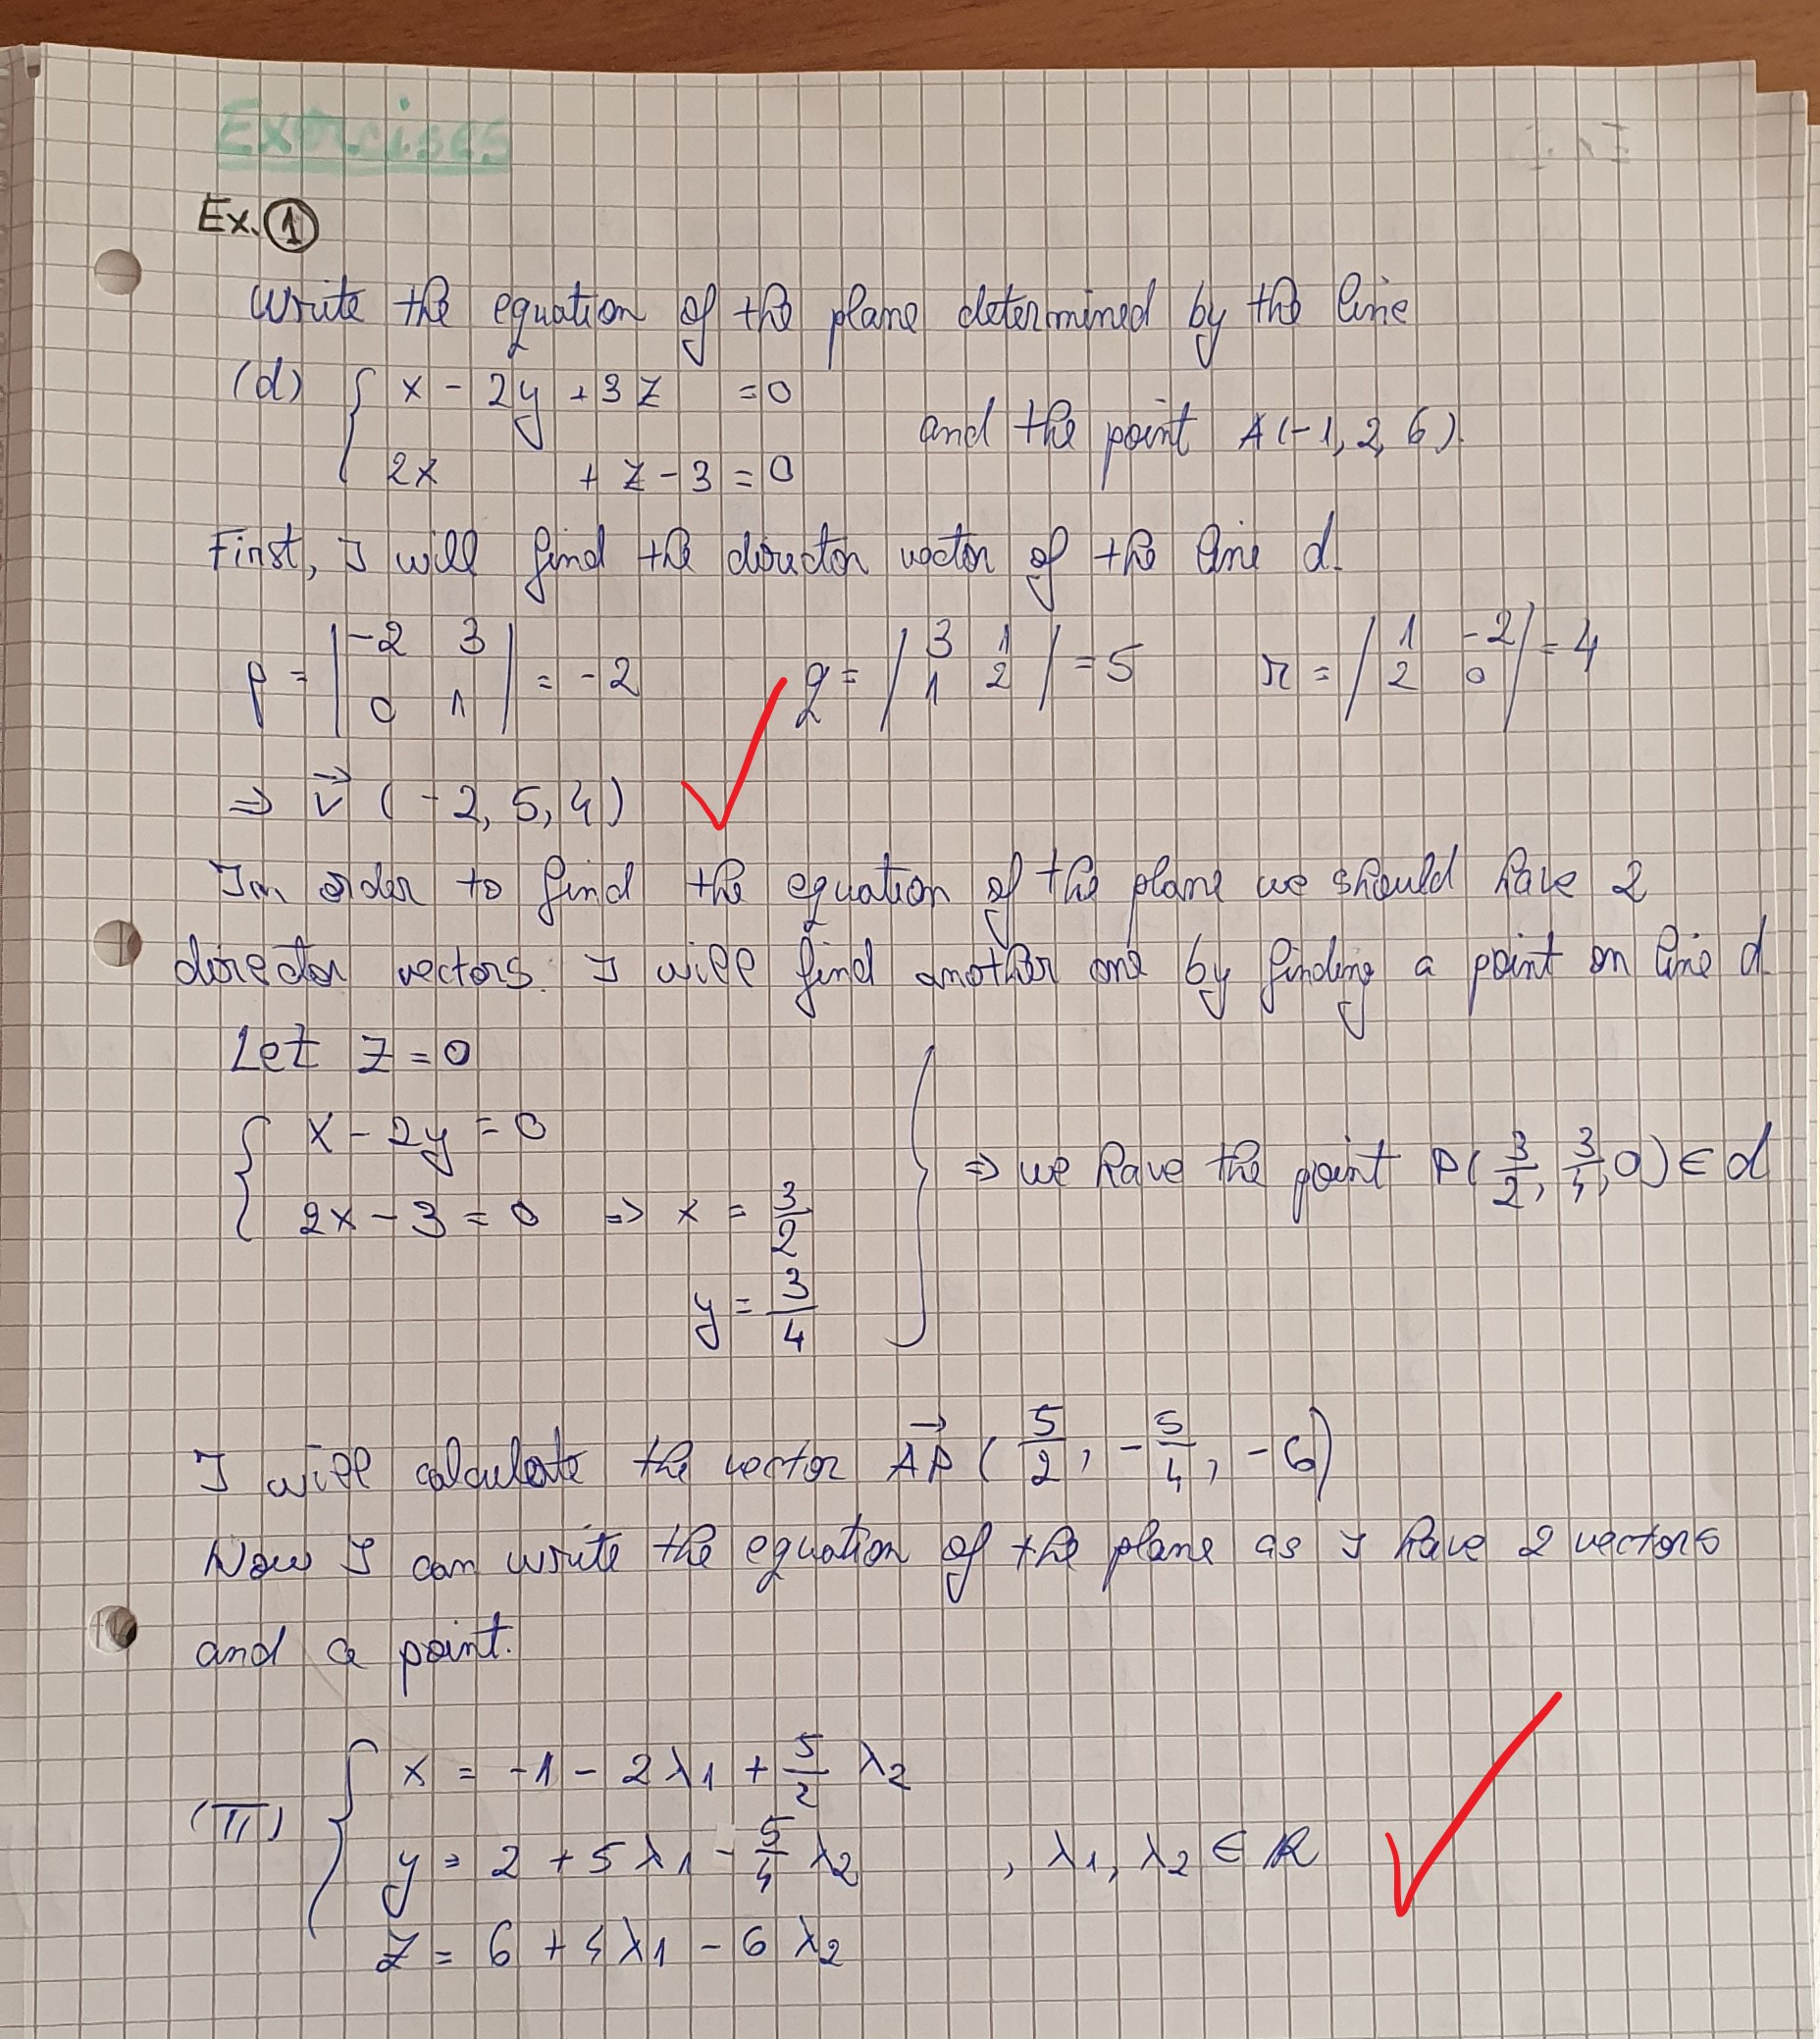 Exercises
Ex. ①
Write the equation of the plane determined by the line
(d) { x - 2y + 3z = 0
2x + z - 3 = 0
and the point A(-1, 2, 6).
First, I will find the director vector of the line d.
p = | -2 3 | = -2 q = | 3 1 | = 5 r = | 1 -2 | = 4
| 0 1 | | 1 2 | | 2 0 |
⇒ v⃗ (-2, 5, 4)
In order to find the equation of the plane we should have 2
director vectors. I will find another one by finding a point on line d.
Let z = 0
{ x - 2y = 0
2x - 3 = 0 ⇒ x = 3/2
y = 3/4
} ⇒ we have the point P(3/2, 3/4, 0) ∈ d
I will calculate the vector AP⃗ (5/2, -5/4, -6)
Now I can write the equation of the plane as I have 2 vectors
and a point.
(π) { x = -1 - 2λ1 + 5/2 λ2
y = 2 + 5λ1 - 5/4 λ2 , λ1, λ2 ∈ R
z = 6 + 4λ1 - 6λ2